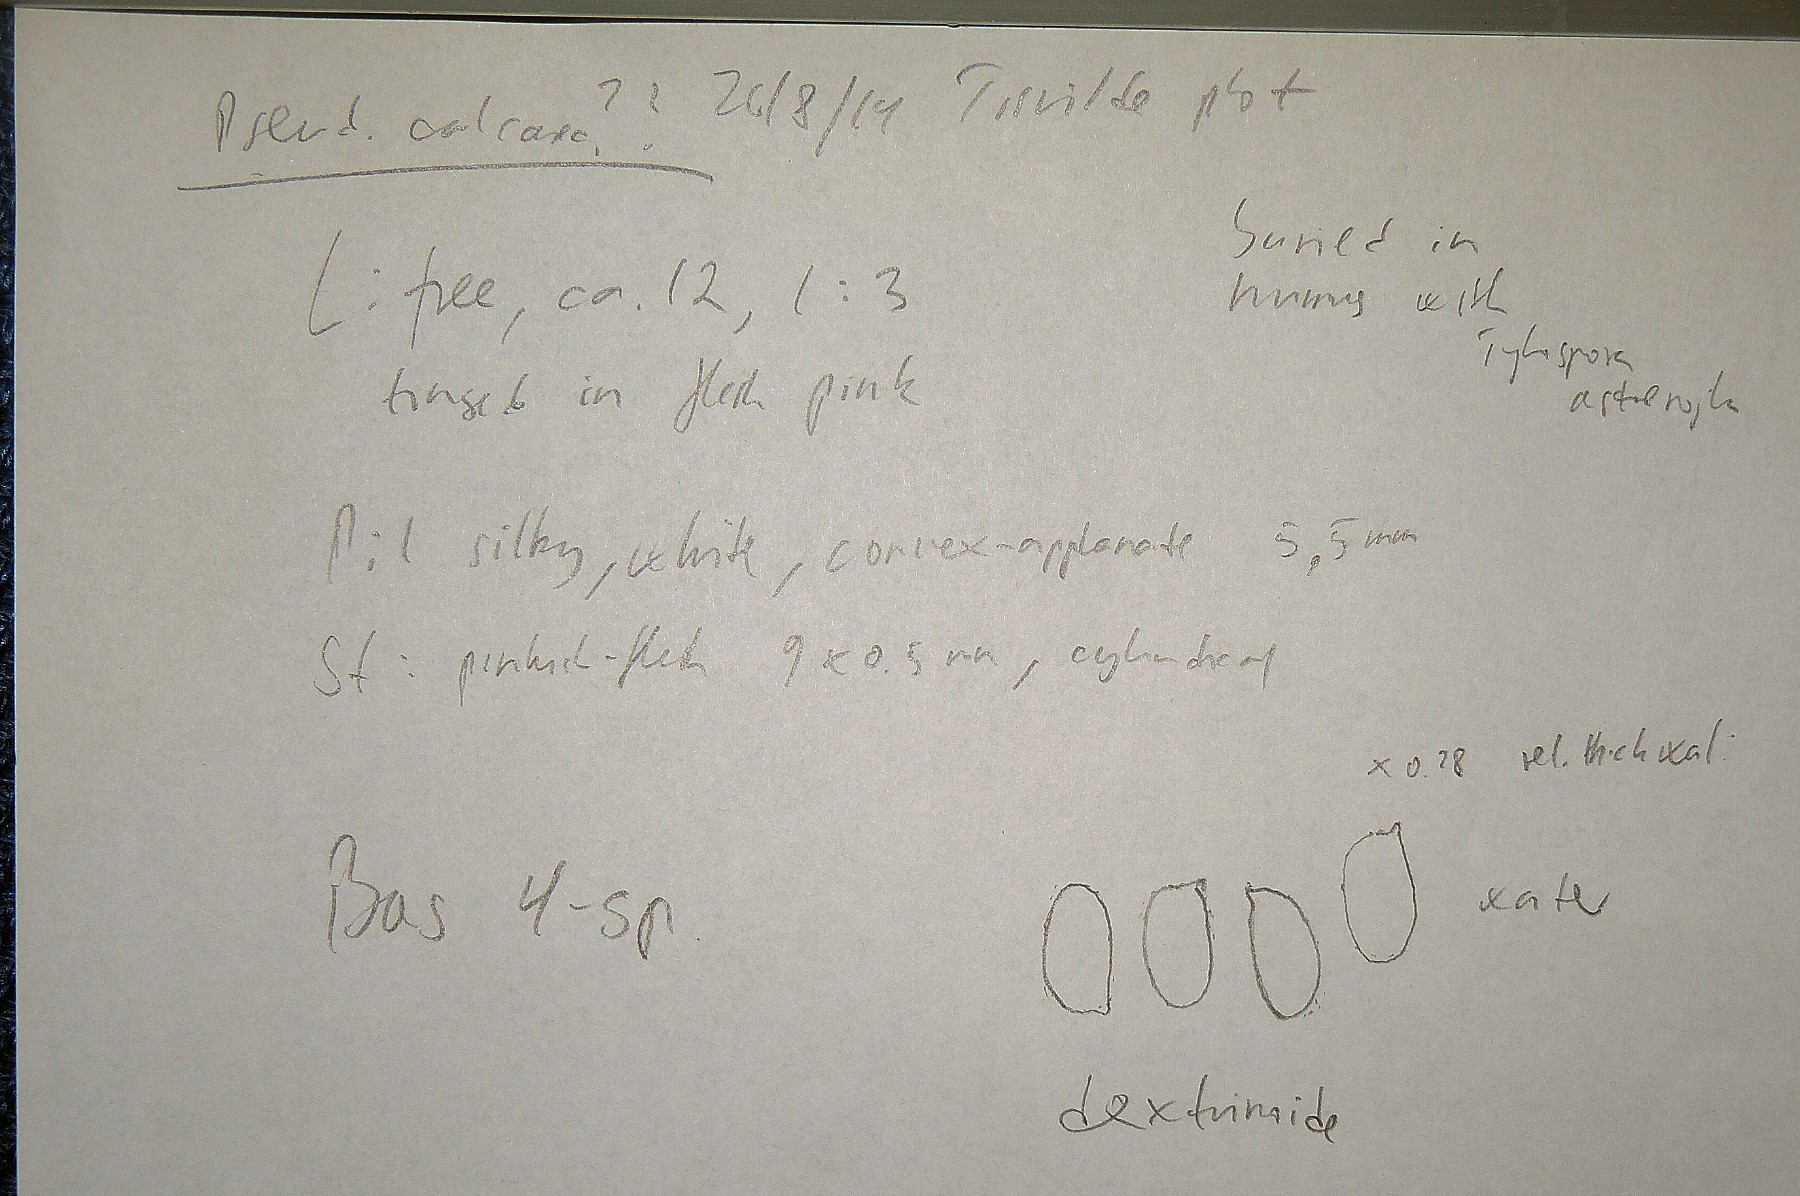 Pseud. calcarea?? 26/8/14 Tisvilde plot
L: free, ca. 12, l:3
tinged in flesh pink
buried in
humus with
Tylospora
asterophora
Pil silky, white, convex-applanate 5,5 mm
St: pinkish-flesh 9 x 0.5 mm, cylindrical
x 0.28 rel. thickwal.
Bas 4-sp.
water
dextrinoide